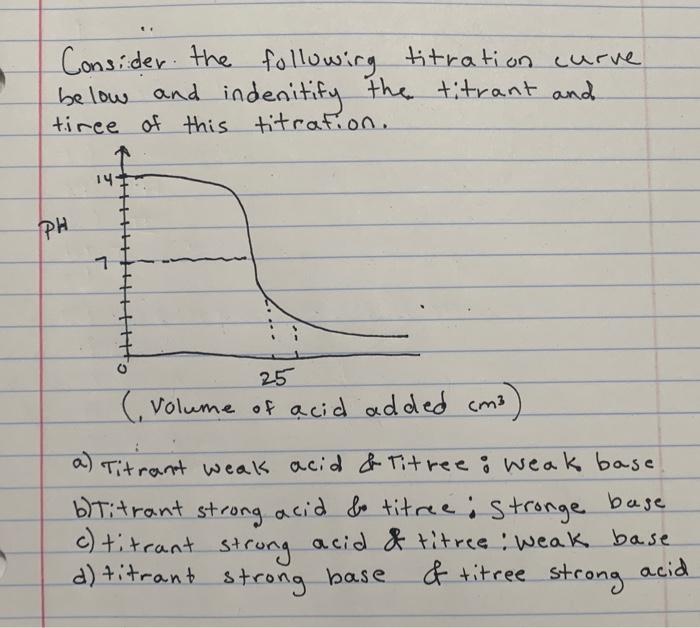 Consider the following titration curve
below and indenitify the titrant and
tiree of this titration.
14
PH
7
0
25
(, Volume of acid added cm³)
a) Titrant weak acid & Titree : weak base
b) Titrant strong acid & titree ; Stronge base
c) titrant strong acid & titree : weak base
d) titrant strong base & titree strong acid